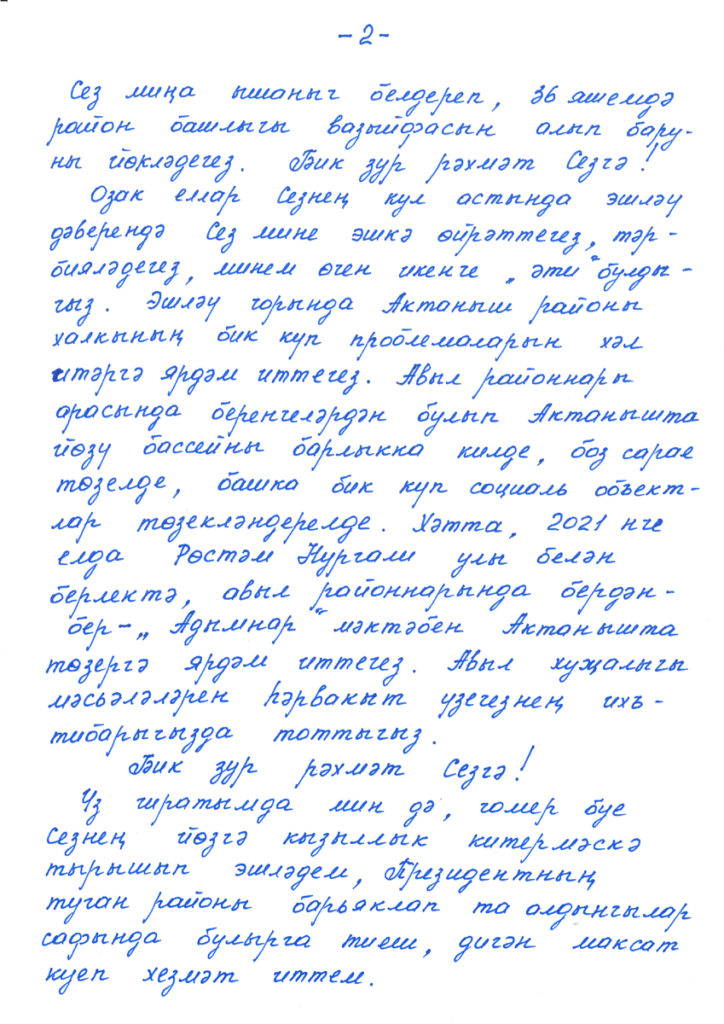 - 2 -
Сез миңа ышаныч белдереп, 36 яшемдә
район башлыгы вазыйфасын алып бару-
ны йөкләдегез. Бик зур рәхмәт Сезгә!
Озак еллар Сезнең кул астында эшләү
дәверендә Сез мине эшкә өйрәттегез, тәр-
бияләдегез, минем өчен икенче „әти“ булды-
гыз. Эшләү чорында Актаныш районы
халкының бик күп проблемаларын хәл
итәргә ярдәм иттегез. Авыл районнары
арасында беренчеләрдән булып Актанышта
йөзү бассейны барлыкка килде, боз сарае
төзелде, башка бик күп социаль объект-
лар төзекләндерелде. Хәтта, 2021 нче
елда Рөстәм Нургали улы белән
берлектә, авыл районнарында бердән-
бер - „Адымнар“ мәктәбен Актанышта
төзергә ярдәм иттегез. Авыл хуҗалыгы
мәсьәләләрен һәрвакыт үзегезнең ихъ-
тибарыгызда тоттыгыз.
Бик зур рәхмәт Сезгә!
Үз чиратымда мин дә, гомер буе
Сезнең йөзгә кызыллык китермәскә
тырышып эшләдем, Президентның
туган районы барьяклап та алдынгылар
сафында булырга тиеш, дигән максат
куеп хезмәт иттем.